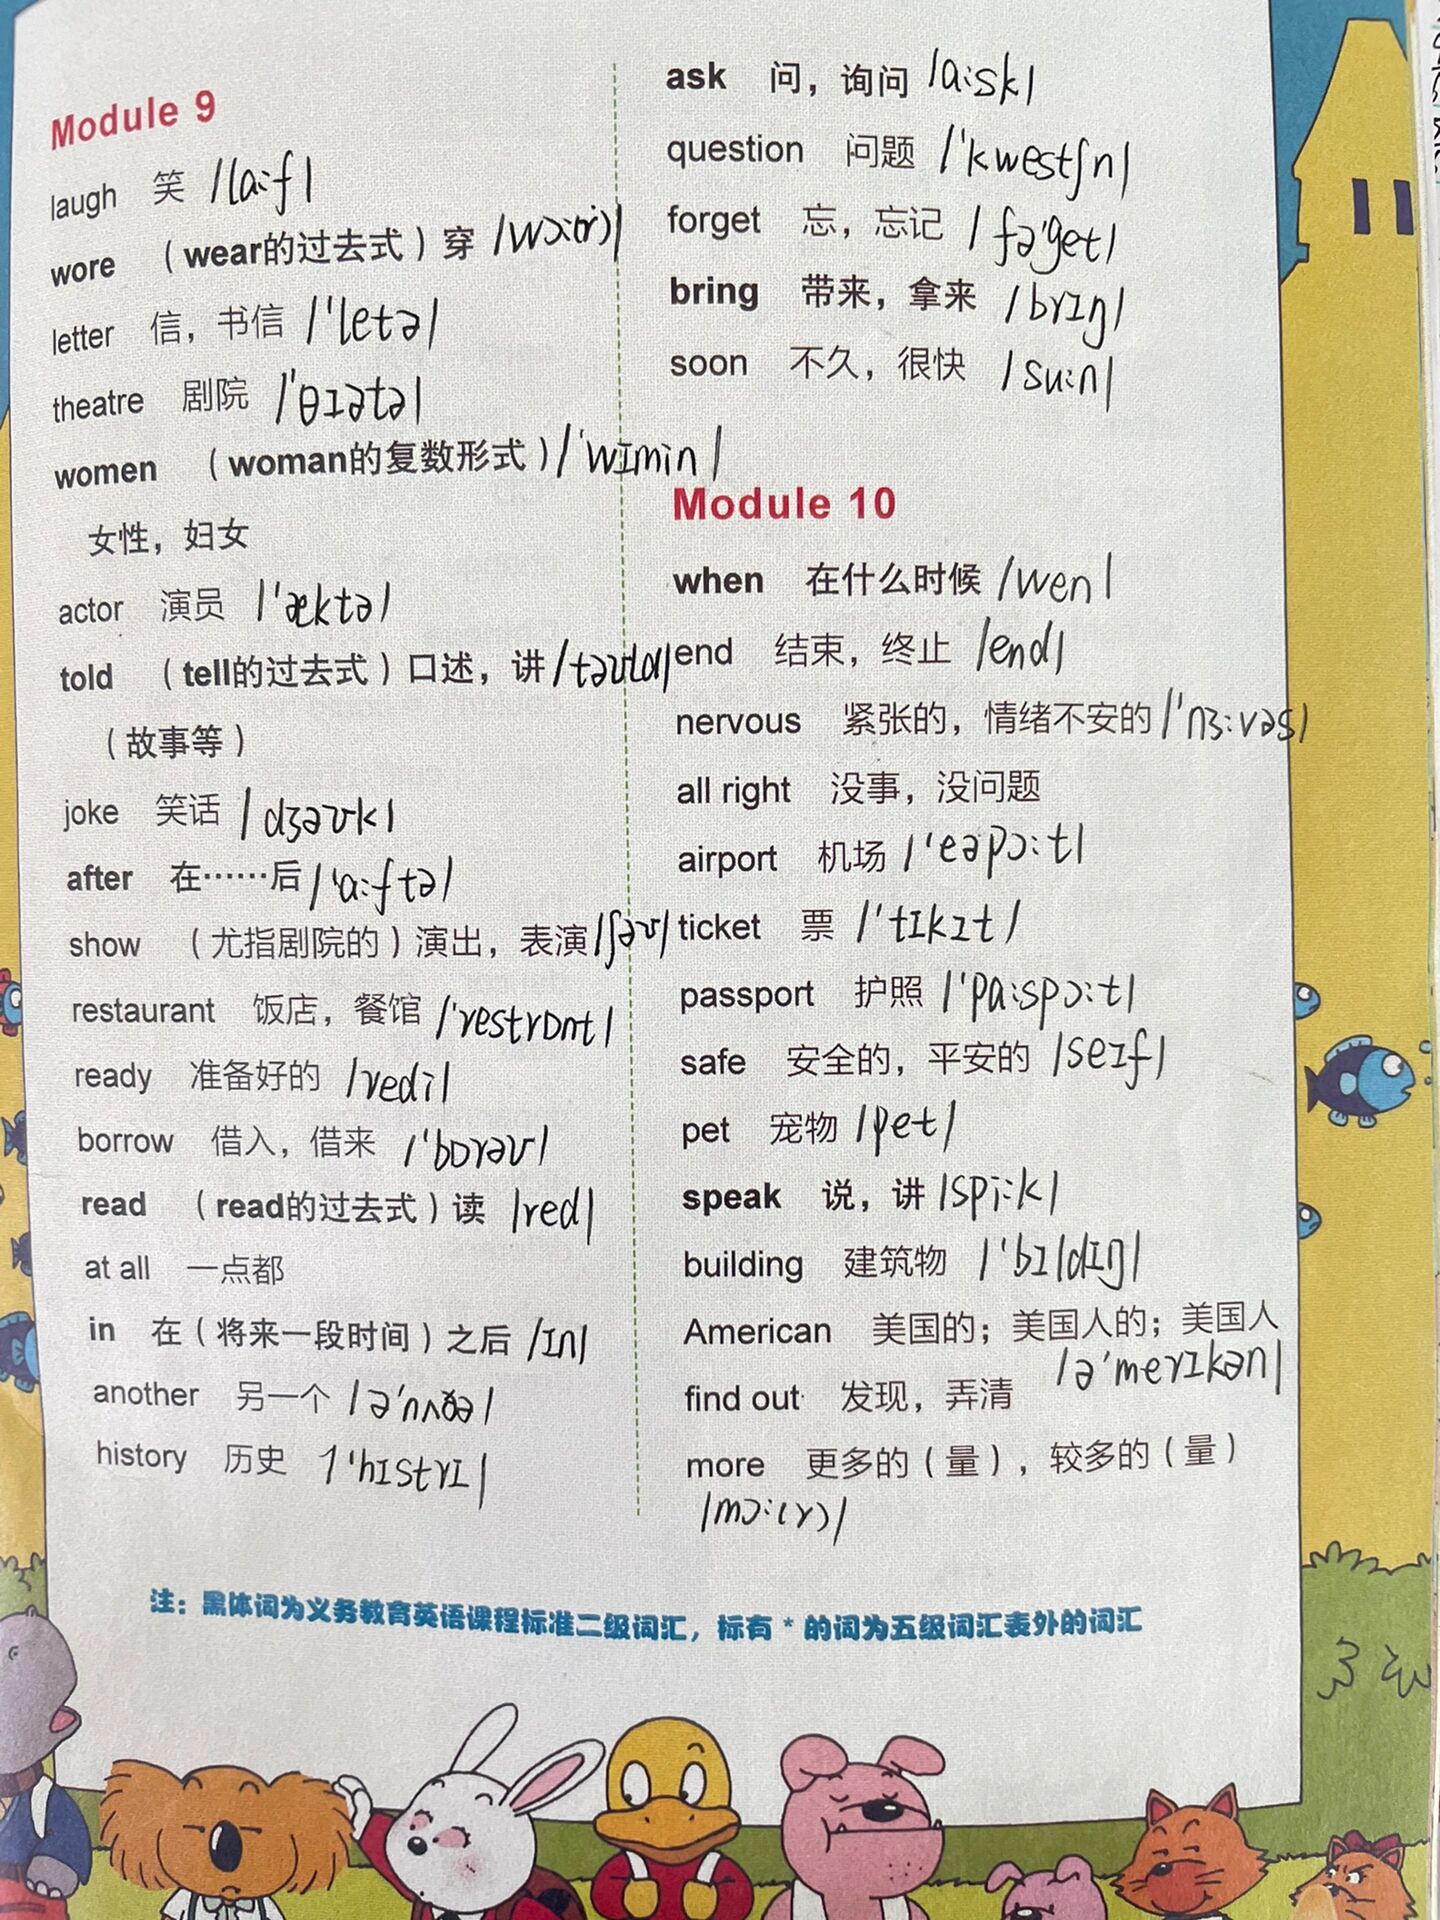 Module 9
laugh 笑 /lɑːf/
wore （wear的过去式）穿 /wɔː(r)/
letter 信，书信 /'letə/
theatre 剧院 /'θɪətə/
women （woman的复数形式）/'wɪmin/
女性，妇女
actor 演员 /'æktə/
told （tell的过去式）口述，讲 /təʊld/
（故事等）
joke 笑话 /dʒəʊk/
after 在……后 /'ɑːftə/
show （尤指剧院的）演出，表演 /ʃəʊ/
restaurant 饭店，餐馆 /'restrɒnt/
ready 准备好的 /redi/
borrow 借入，借来 /'bɒrəʊ/
read （read的过去式）读 /red/
at all 一点都
in 在（将来一段时间）之后 /ɪn/
another 另一个 /ə'nʌðə/
history 历史 /'hɪstrɪ/
ask 问，询问 /ɑːsk/
question 问题 /'kwestʃn/
forget 忘，忘记 /fə'get/
bring 带来，拿来 /brɪŋ/
soon 不久，很快 /suːn/
Module 10
when 在什么时候 /wen/
end 结束，终止 /end/
nervous 紧张的，情绪不安的 /'nɜːvəs/
all right 没事，没问题
airport 机场 /'eəpɔːt/
ticket 票 /'tɪkɪt/
passport 护照 /'pɑːspɔːt/
safe 安全的，平安的 /seɪf/
pet 宠物 /pet/
speak 说，讲 /spiːk/
building 建筑物 /'bɪldɪŋ/
American 美国的；美国人的；美国人
/ə'merɪkən/
find out 发现，弄清
more 更多的（量），较多的（量）
/mɔː(r)/
注：黑体词为义务教育英语课程标准二级词汇，标有 * 的词为五级词汇表外的词汇